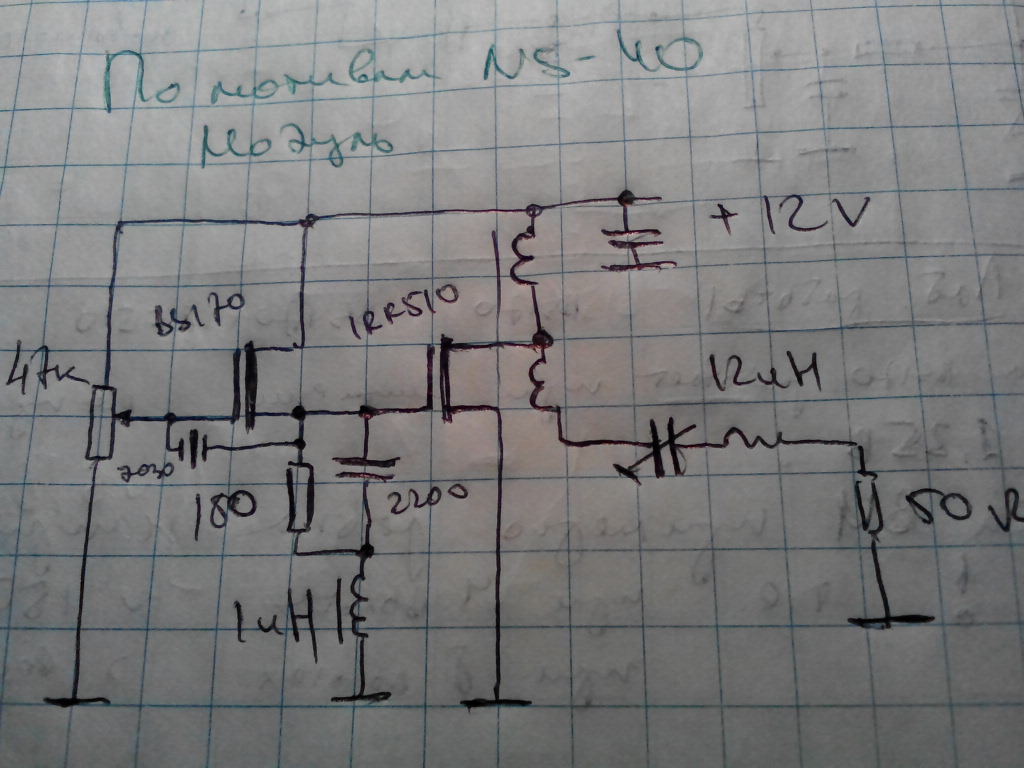 По мотивам NS-40
Модуль
+12V
BS170
IRR510
47к
12uH
2020
180
2200
50 R
1uH